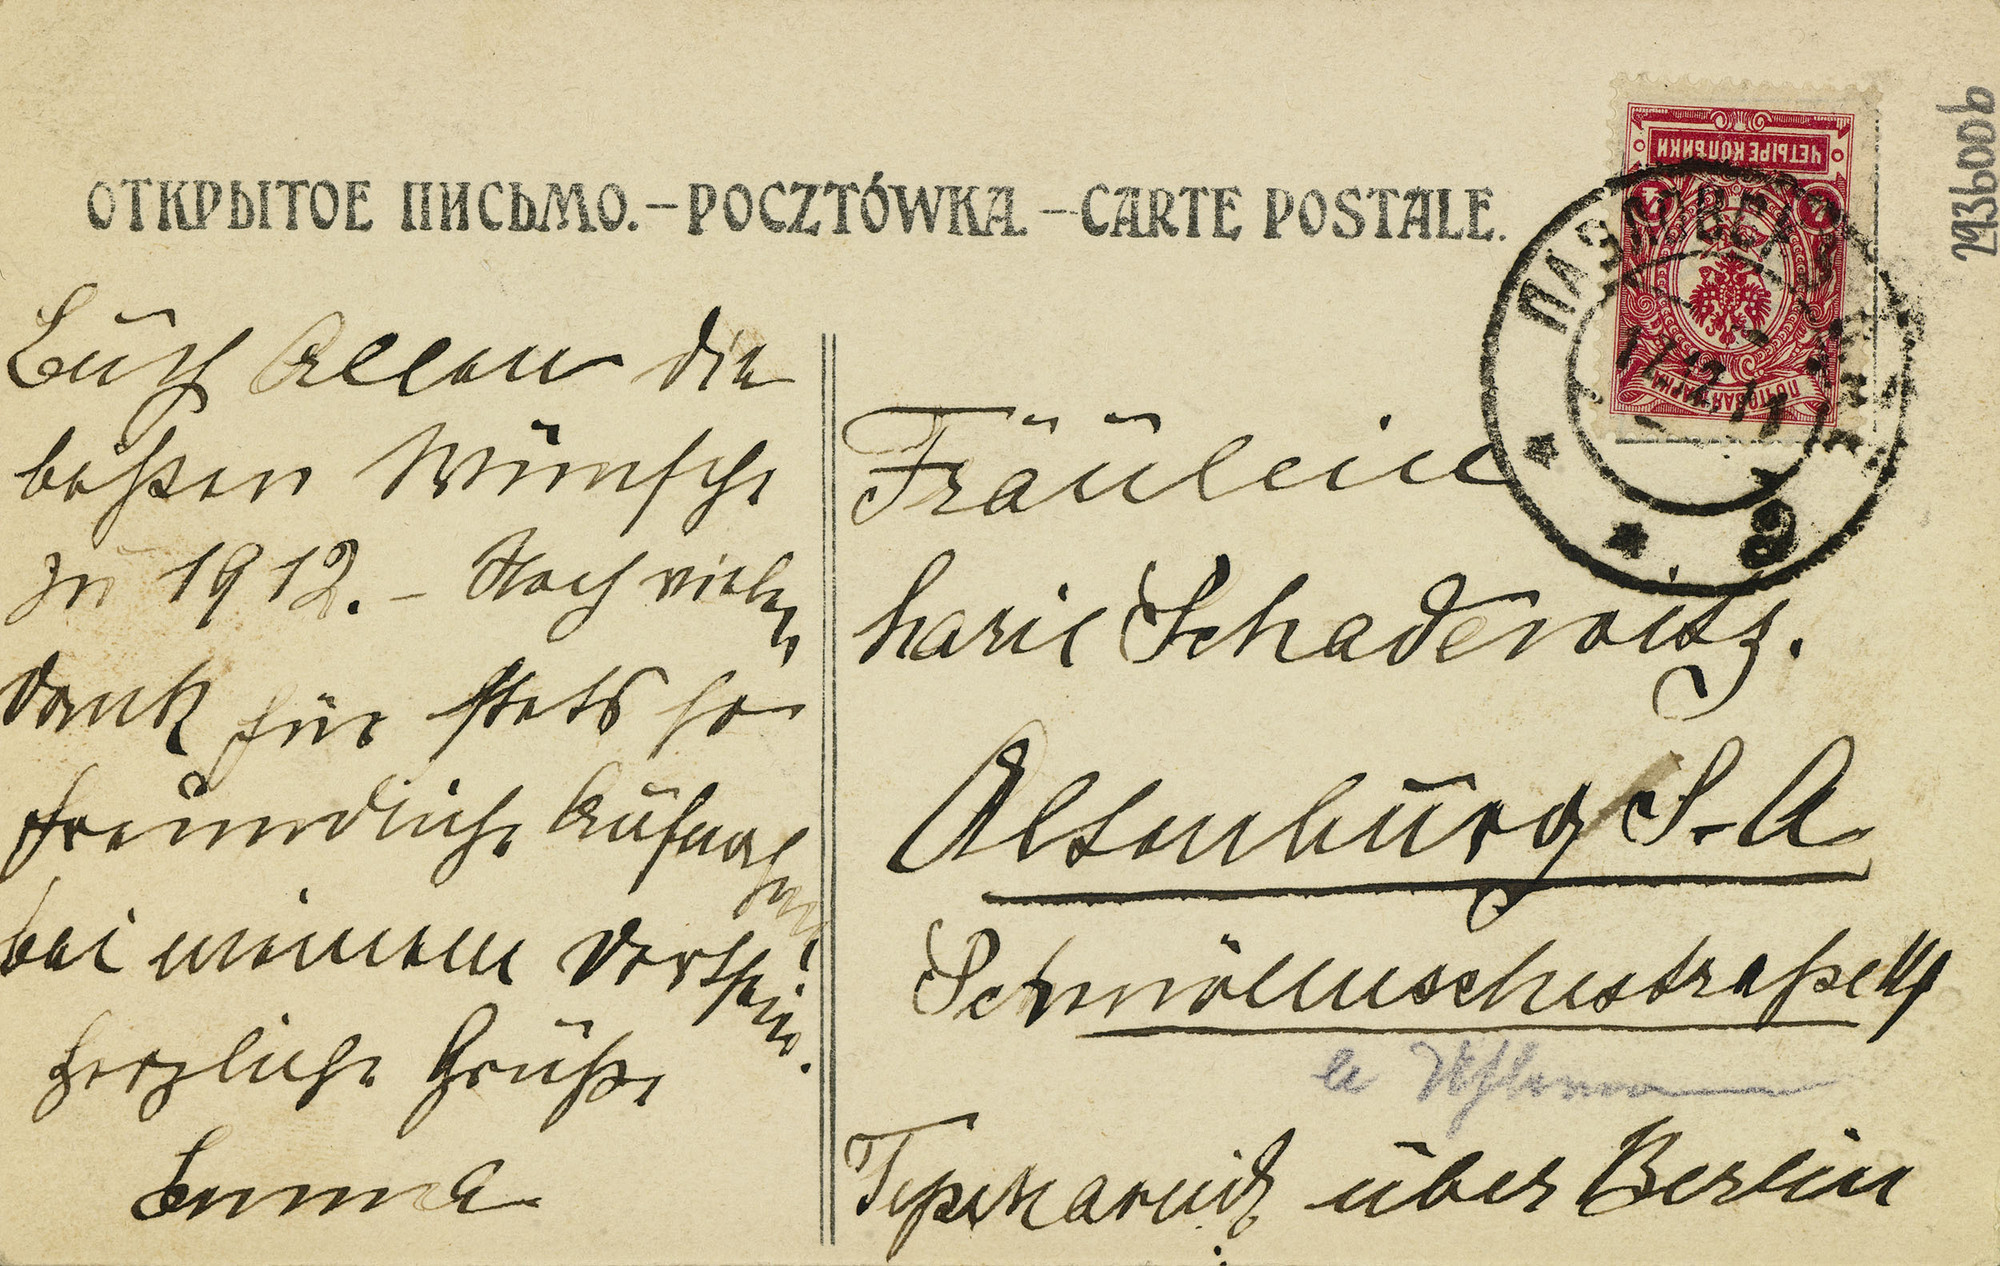 ОТКРЫТОЕ ПИСЬМО. – POCZTÓWKA – CARTE POSTALE.
2936006
ЧЕТЫРЕ КОПѢЙКИ
4 4
ПОЧТОВАЯ МАРКА
17.12.11
Euch Allen die
besten Wünsche
zu 1912. – Noch vielen
Dank für stets so
freundliche Aufnahme
bei meinem Dortsein.
Herzliche Grüße
Emma
Fräulein
Marie Schadewitz.
Altenburg S-A
Schmöllnschestraße
Германія über Berlin